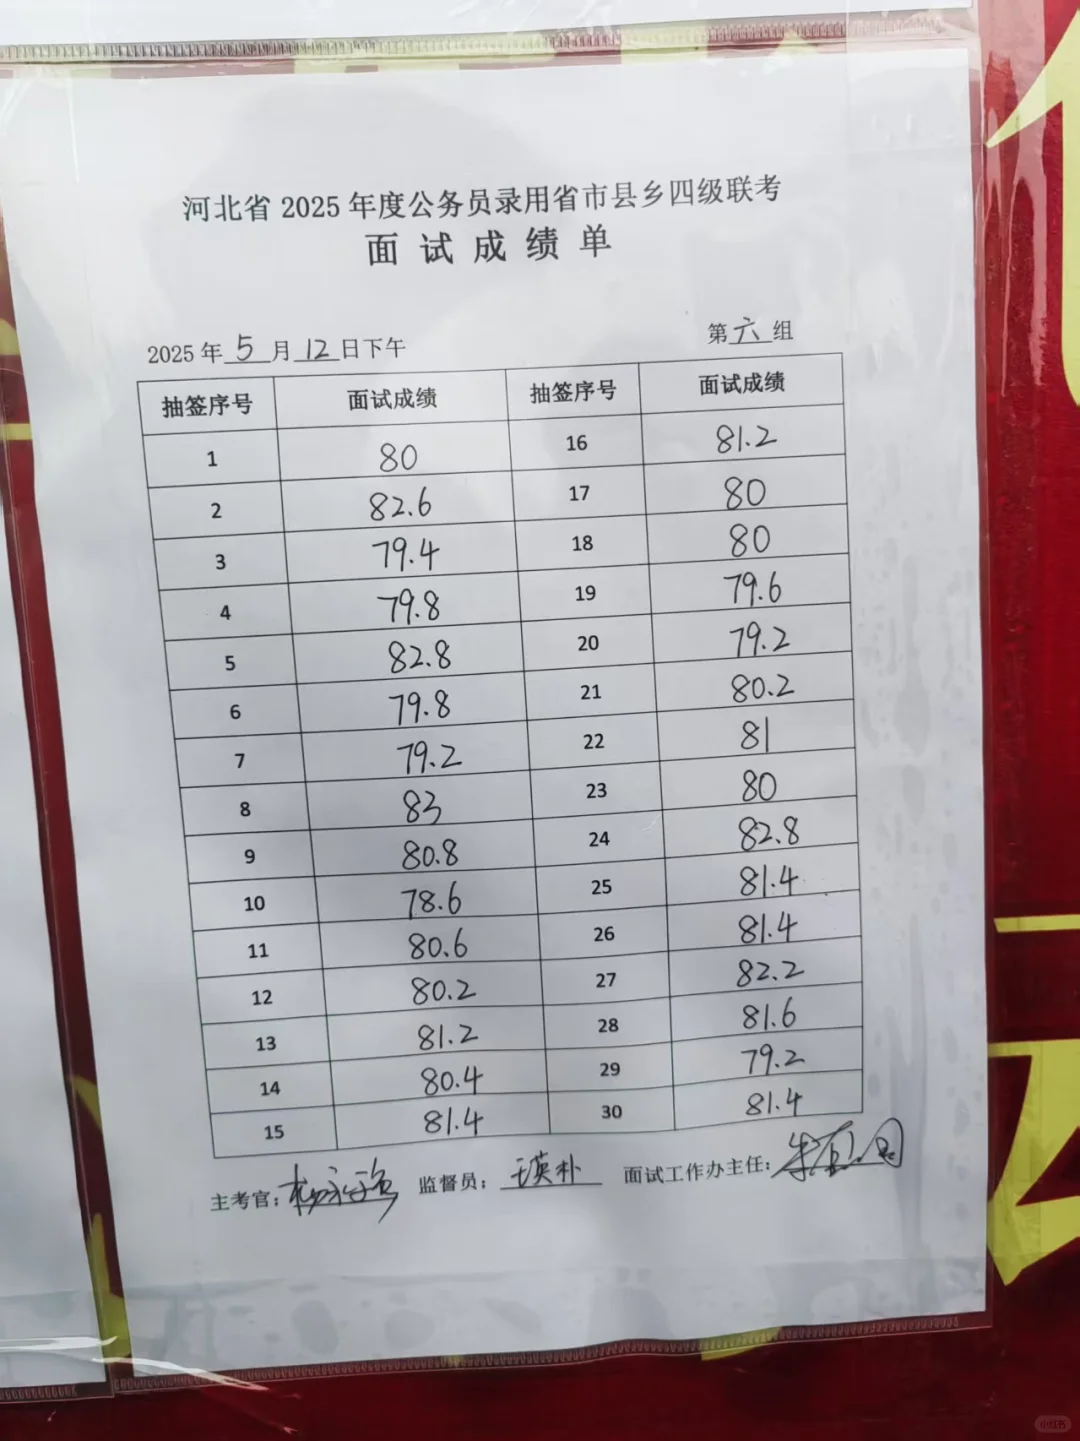 河北省 2025 年度公务员录用省市县乡四级联考
面试成绩单
2025 年 5 月 12 日下午 第六组
抽签序号 面试成绩 抽签序号 面试成绩
1 80 16 81.2
2 82.6 17 80
3 79.4 18 80
4 79.8 19 79.6
5 82.8 20 79.2
6 79.8 21 80.2
7 79.2 22 81
8 83 23 80
9 80.8 24 82.8
10 78.6 25 81.4
11 80.6 26 81.4
12 80.2 27 82.2
13 81.2 28 81.6
14 80.4 29 79.2
15 81.4 30 81.4
主考官: 监督员: 面试工作办主任:
小红书